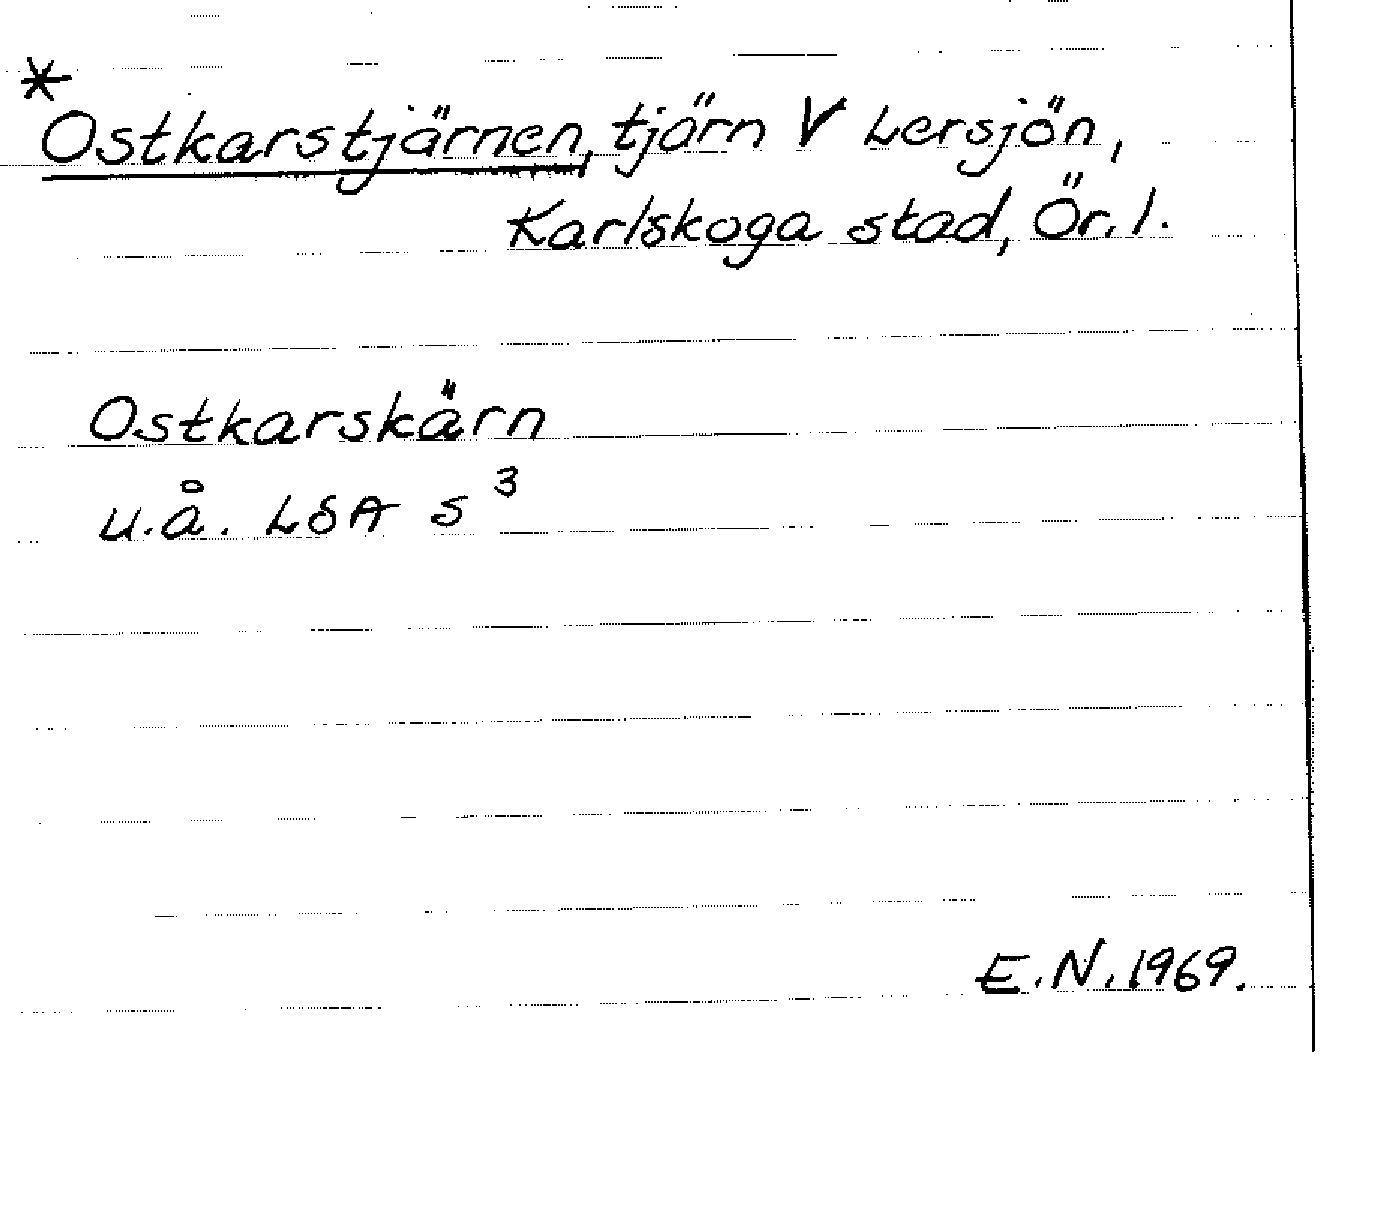 *
Ostkarstjärnen, tjärn V Lersjön,
Karlskoga stad, Ör. l.
Ostkarskärn
u.å. LSA S 3
E.N. 1969.